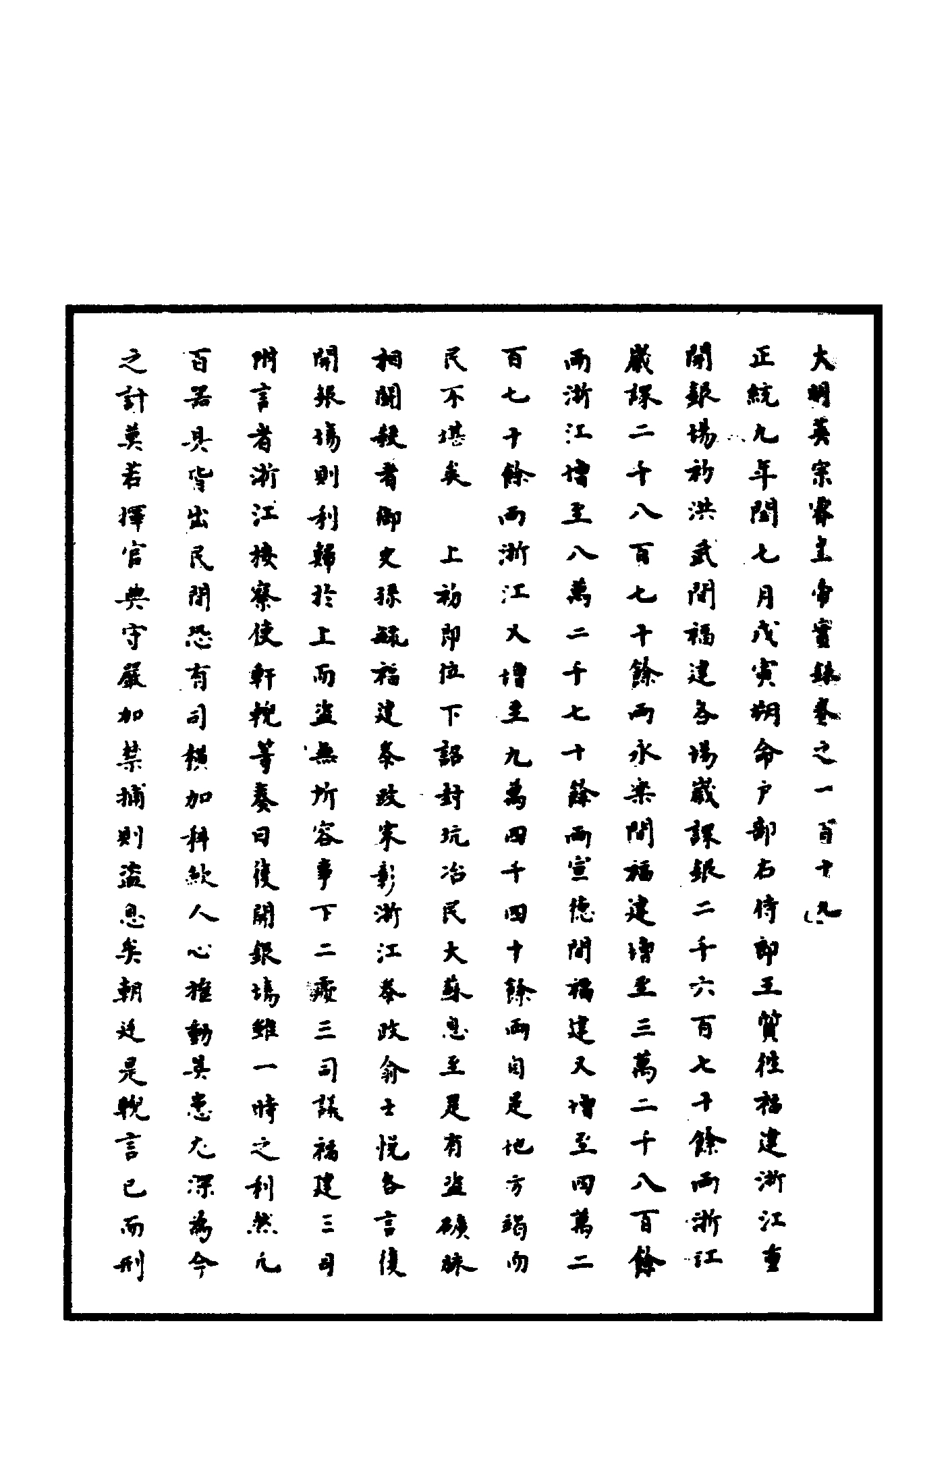 大明英宗睿皇帝實錄卷之一百十九
正統九年閏七月戊寅朔命户部右侍郎王質徃福建浙江重
開銀場初洪武間福建各場歲課銀二千六百七十餘兩浙江
歲課二千八百七十餘兩永樂間福建增至三萬二千八百餘
兩浙江增至八萬二千七十餘兩宣德間福建又增至四萬二
百七十餘兩浙江又增至九萬四千四十餘兩自是地方竭而
民不堪矣　上初即位下詔封坑冶民大蘇息至是有盜礦脉
相鬪殺者御史孫毓福建叅政宋彰浙江叅政俞士悅各言復
開銀場則利歸於上而盜無所容事下二處三司議福建三司
附言者浙江按察使軒輗等奏曰復開銀場雖一時之利然凢
百器具皆出民間恐有司橫加科歛人心摇動其患尤深為今
之計莫若擇官典守嚴加禁捕則盜息矣朝廷是輗言已而刑